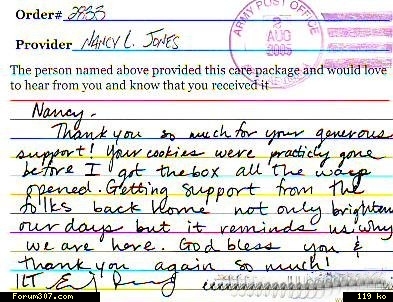 Order# 2933
ARMY POST OFFICE
2
AUG
2005
Provider NANCY L. JONES
The person named above provided this care package and would love
to hear from you and know that you received it
Nancy,
Thank you so much for your generous
support! Your cookies were practicly gone
before I got the box all the way
opened. Getting support from the
folks back home not only brighten
our days but it reminds us why
we are here. God bless you &
thank you again so much!
1LT
Forum307.com
119 ko